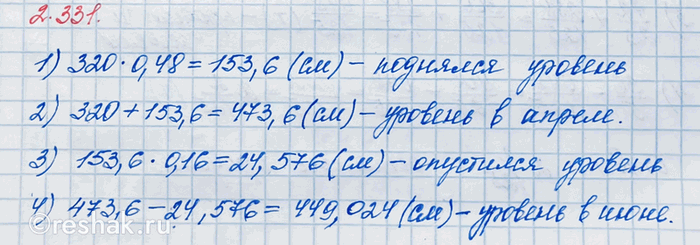 2.331.
1) 320 · 0,48 = 153,6 (см) – поднялся уровень
2) 320 + 153,6 = 473,6 (см) – уровень в апреле.
3) 153,6 · 0,16 = 24,576 (см) – опустился уровень
4) 473,6 – 24,576 = 449,024 (см) – уровень в июне.
©reshak.ru